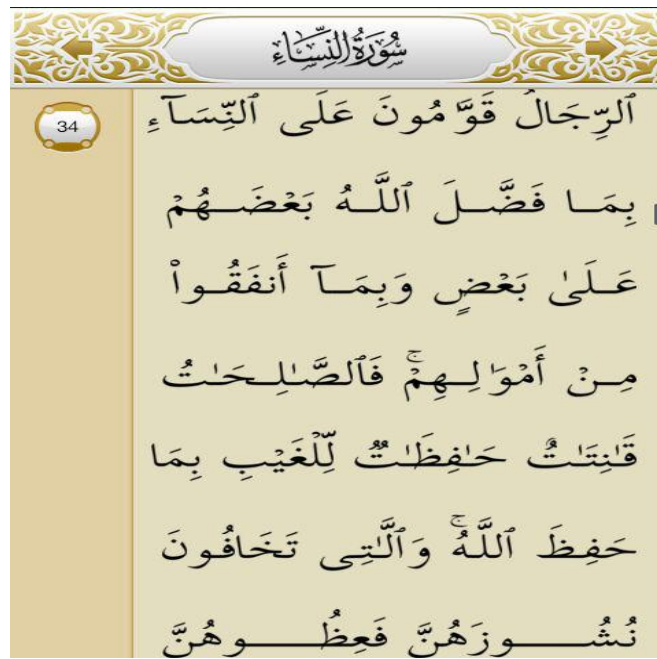 سُورَةُ النِّسَاءِ
34
ٱلرِّجَالُ قَوَّٰمُونَ عَلَى ٱلنِّسَآءِ
بِمَا فَضَّلَ ٱللَّهُ بَعْضَهُمْ
عَلَىٰ بَعْضٍ وَبِمَآ أَنفَقُوا۟
مِنْ أَمْوَٰلِهِمْ ۚ فَٱلصَّـٰلِحَـٰتُ
قَـٰنِتَـٰتٌ حَـٰفِظَـٰتٌ لِّلْغَيْبِ بِمَا
حَفِظَ ٱللَّهُ ۚ وَٱلَّـٰتِى تَخَافُونَ
نُشُوزَهُنَّ فَعِظُوهُنَّ